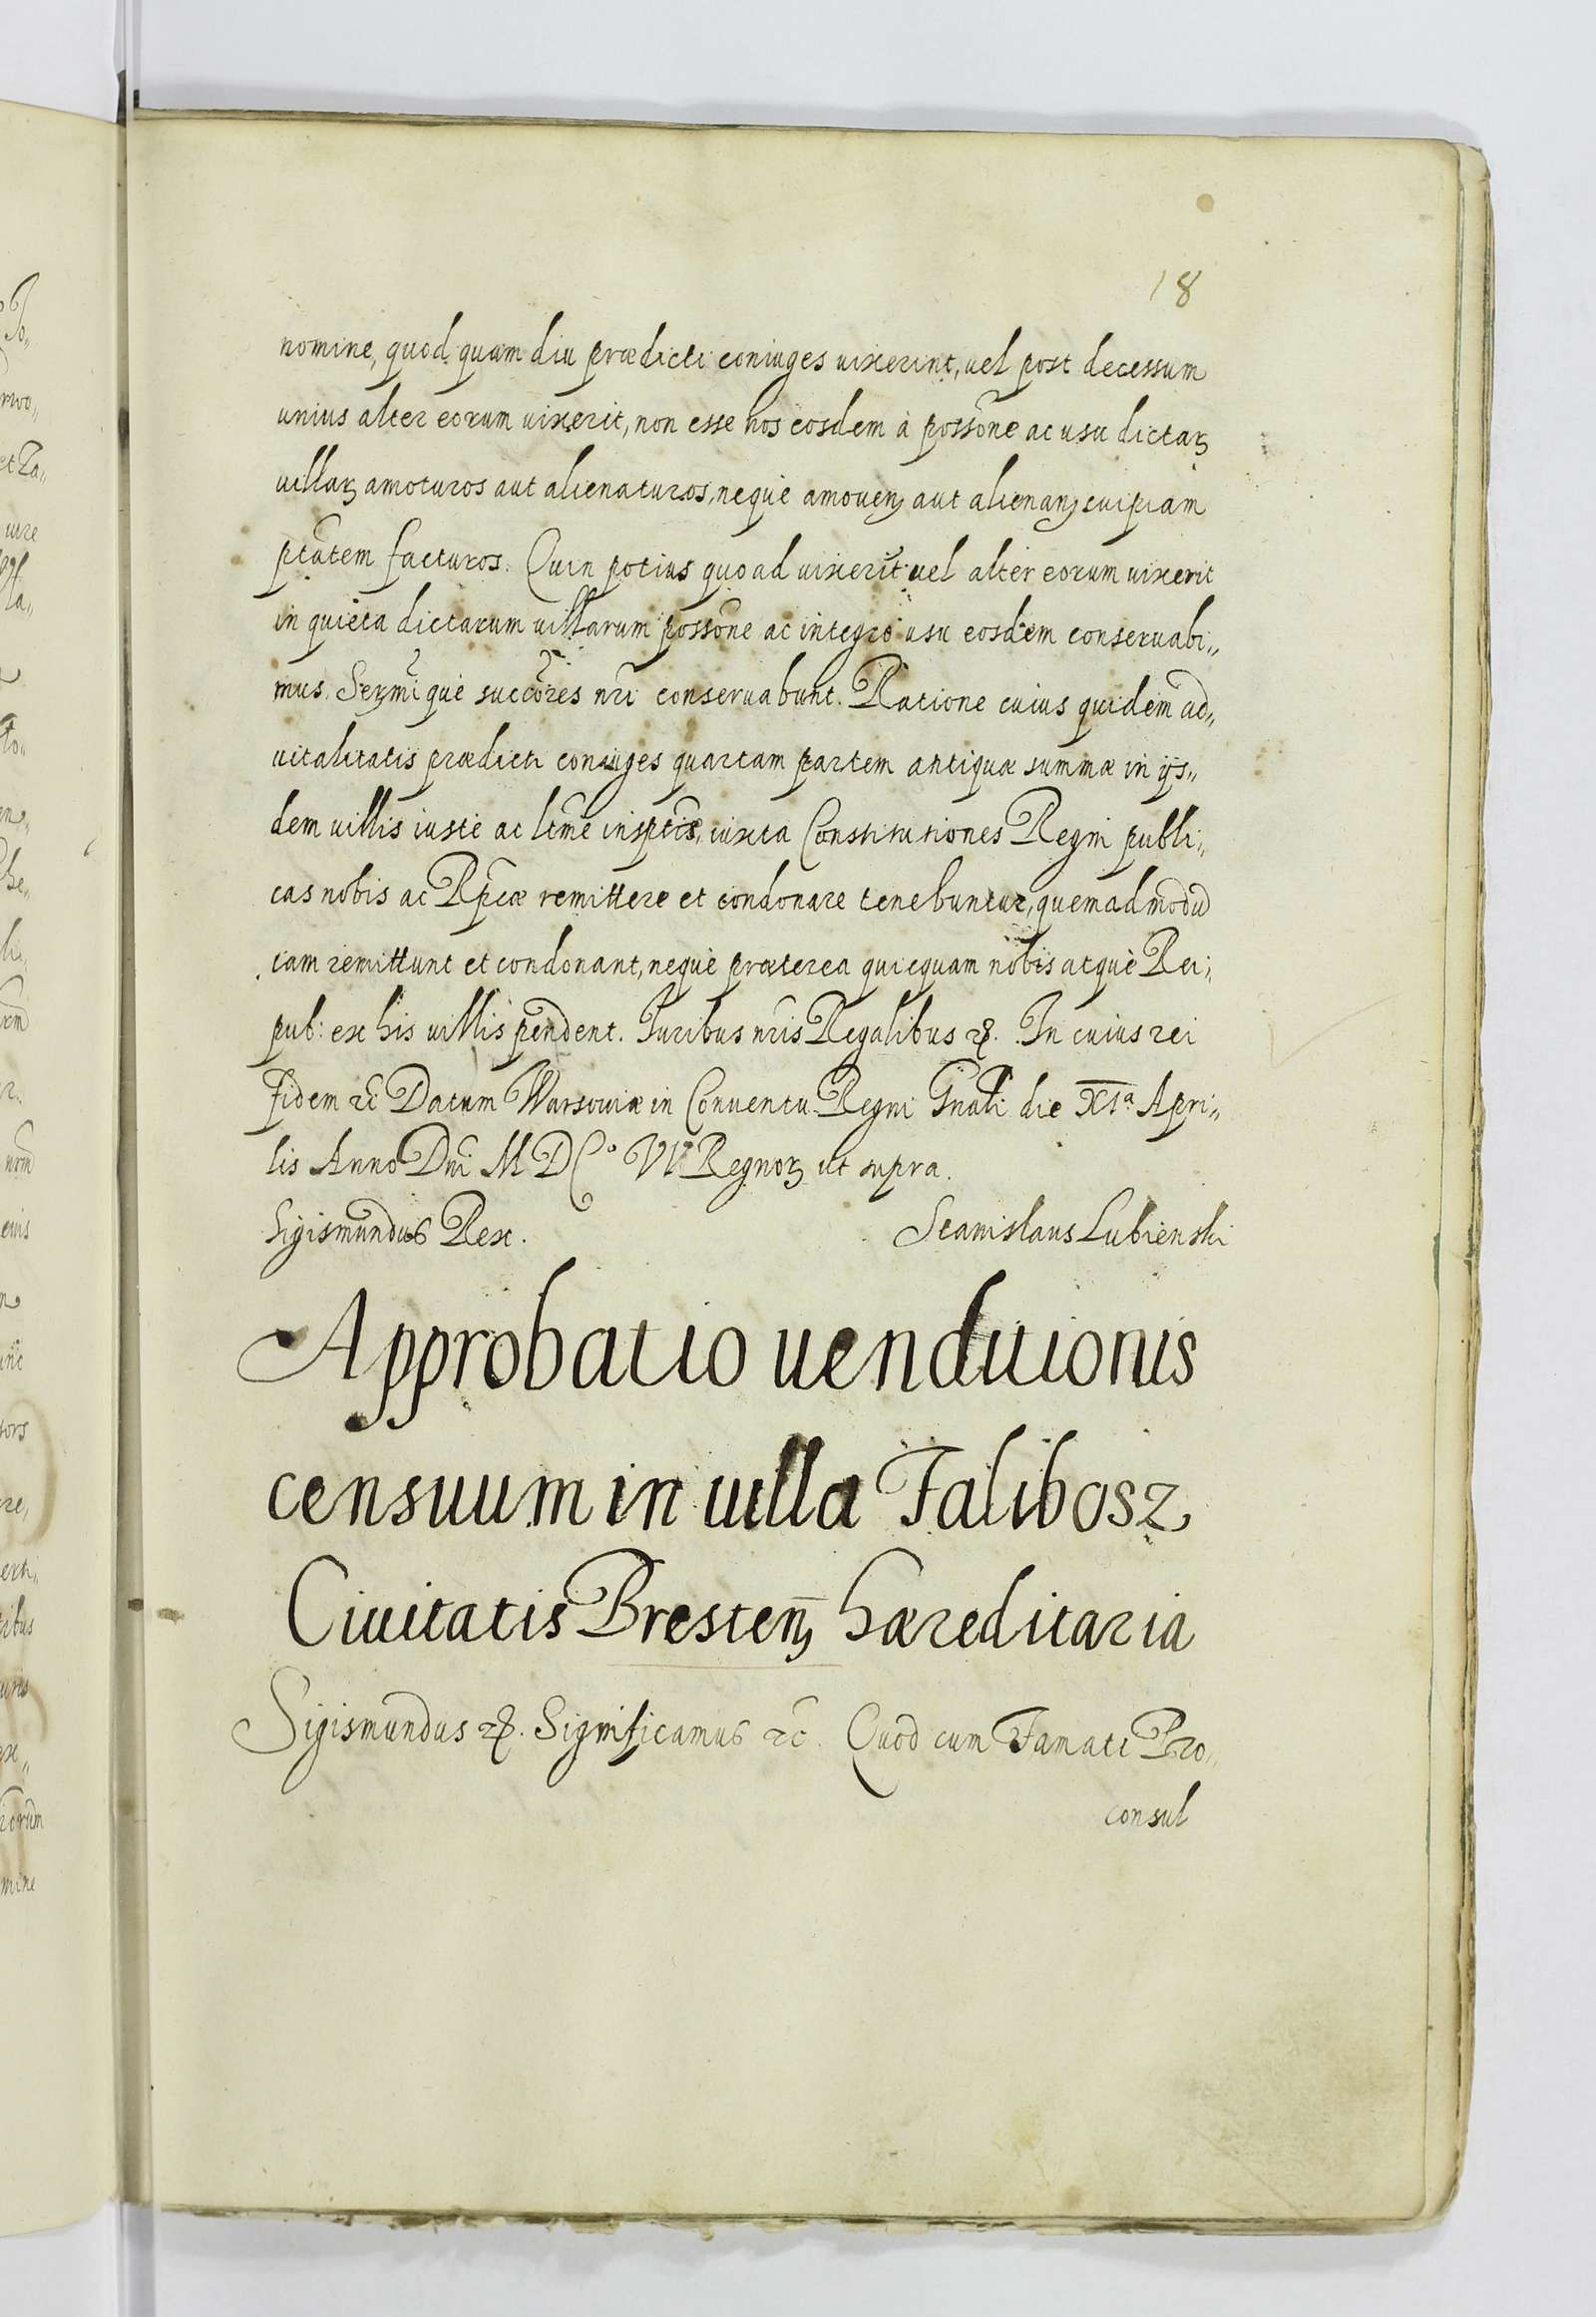 18
nomine, quod quam diu prædicti coniuges uixerint, uel post decessum
unius alter eorum uixerit, non esse nos eosdem à possõne ac usu dictaꝝ
uillaꝝ amoturos aut alienaturos, neque amouenꝭ aut alienanꝭ cuipiam
ptãtem facturos. Quin potius quoad uixerĩt uel alter eorum uixerit
in quieta dictarum uillarum possõne ac integro usu eosdem conseruabi„
mus. Serꝫmĩ que succõres nrĩ conseruabunt. Ratione cuius quidem ad„
uitalitatis prædicti coniuges quartam partem antiquæ summæ in ijs„
dem uillis iuste ac ltmẽ insptis, iuxta Constitutiones Regni publi„
cas nobis ac Rpcæ remittere et condonare tenebuntur, quemadmodũ
eam remittunt et condonant, neque præterea quicquam nobis atque Rei„
pub: ex his uillis pendent. Iuribus nrĩs Regalibus ꝛꝭ. In cuius rei
fidem ꝛc̃ Datum Warsouiæ in Conuentu Regni Gnali die XIª Apri„
lis Anno Dni M DCº VIº Regnoꝝ ut supra.
Sigismundus Rex. Stanislaus Lubienski
Approbatio uenditionis
censuum in uilla Falibosz
Ciuitatis Brestenꝭ hæreditaria
Sigismundus ꝛꝭ. Significamus ꝛc̃. Quod cum Famati Pro„
consul